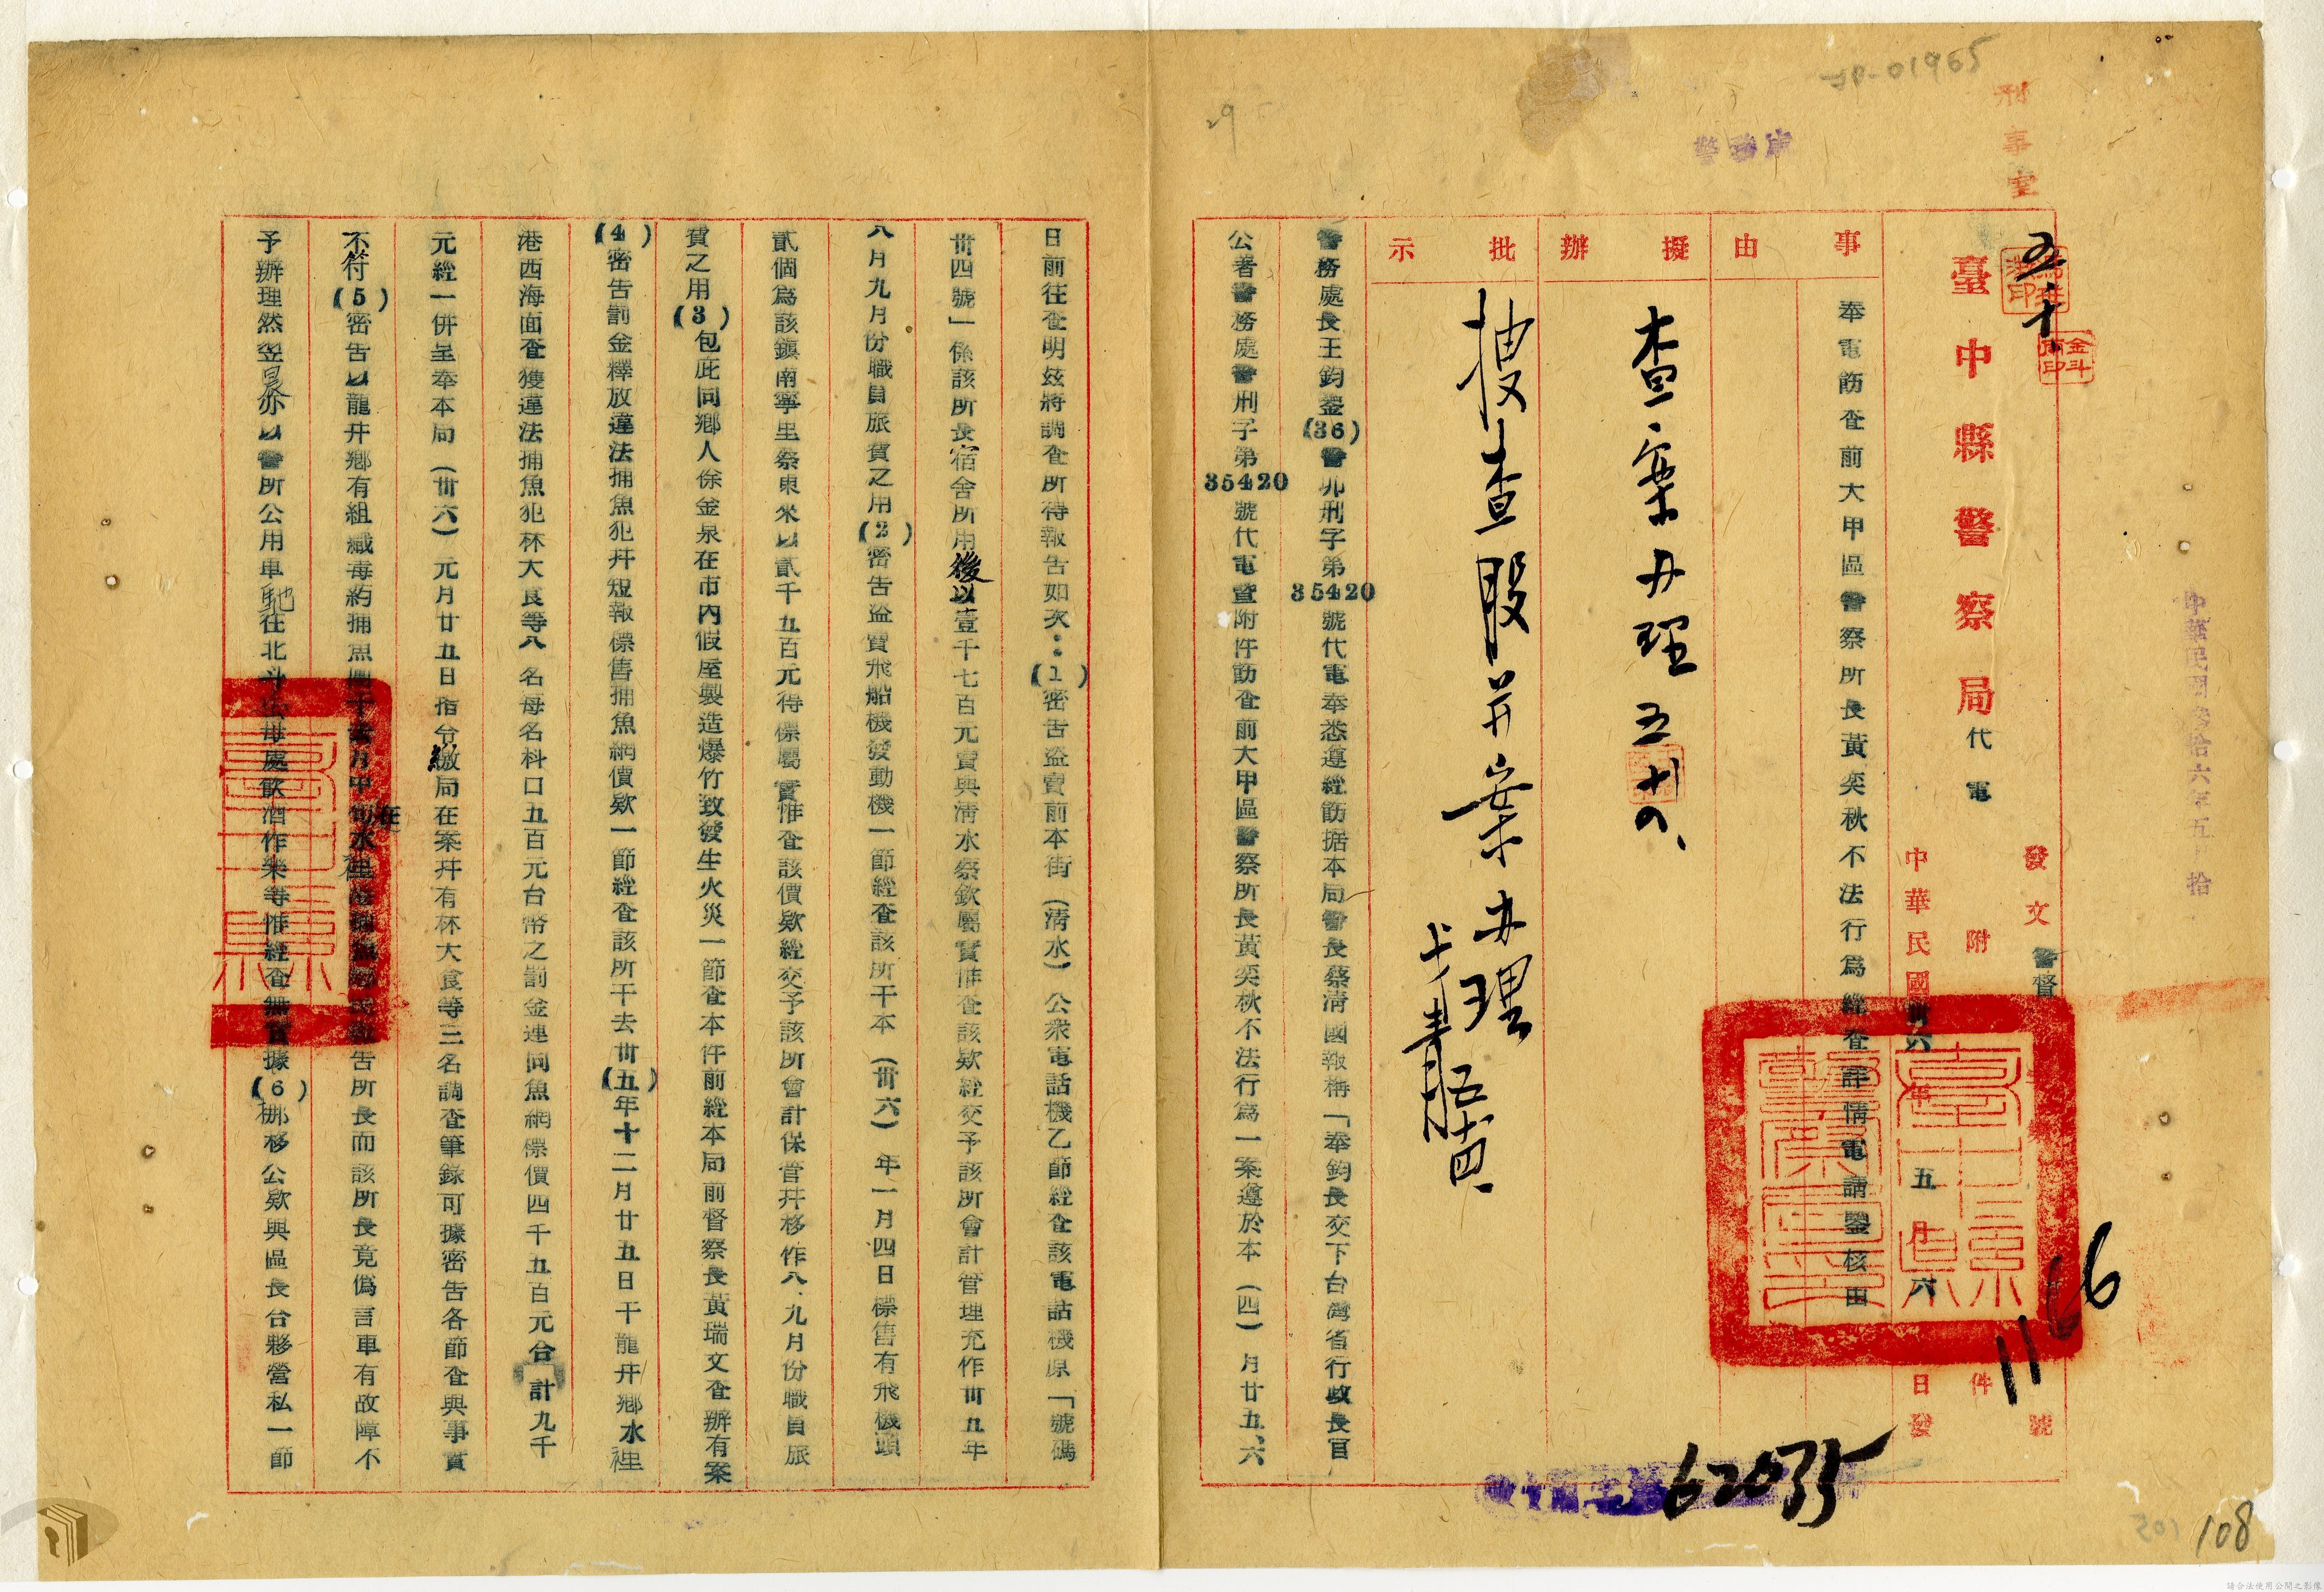 刑事室
警務處
臺中縣警察局代電
發文 警督 號
附 件
中華民國卅六年五月六日發
1166
中華民國參拾六年五 拾
事由
奉電飭查前大甲區警察所長黃奕秋不法行為經查詳情電請鑒核由
擬辦
查案办理
批示
抽查股并案办理
警務處長王鈞鑒(36)警卯刑字第35420號代電奉悉遵經飭据本局警長蔡清國報稱「奉鈞長交下台灣省行政長官
公署警務處警刑字第35420號代電暨附件飭查前大甲區警察所長黃奕秋不法行為一案遵於本(四)月廿五、六
日前往查明玆將調查所得報告如次：(1)密告盜賣前本街(清水)公衆電話機乙節經查該電話機原「號碼
卅四號」係該所長宿舍所用後以壹千七百元賣與清水蔡欽屬實惟查該欵經交予該所會計管理充作卅五年
八月九月份職員旅費之用(2)密告盜賣飛船機發動機一節經查該所干本(卅六)年一月四日標售有飛機頭
貳個爲該鎮南寧里蔡東來以貳千五百元得標屬實惟查該價欵經交予該所會計保管幷移作八、九月份職員旅
費之用(3)包庇同鄉人徐金泉在市內假座製造爆竹致發生火災一節查本件前經本局前督察長黃瑞文查辦有案
(4)密告罰金釋放違法捕魚犯幷短報標售捕魚網價欵一節經查該所干去卅(五)年十二月廿五日干龍井鄉水裡
港西海面查獲違法捕魚犯林大食等八名每名科口五百元台幣之罰金連同魚網標價四千五百元合計九千
元經一併呈奉本局(卅六)元月廿五日指令繳局在案幷有林大食等三名調查筆錄可據密告各節查與事實
不符(5)密告以龍井鄉有組織毒葯捕魚團干去月中旬在水裡港 告所長而該所長竟僞言車有故障不
予辦理然翌晨亦以警所公用車馳往北斗 母處飲酒作樂等惟經查無實據(6)挪移公欵與區長台夥營私一節
62035
108
29
請合法使用公開之影像